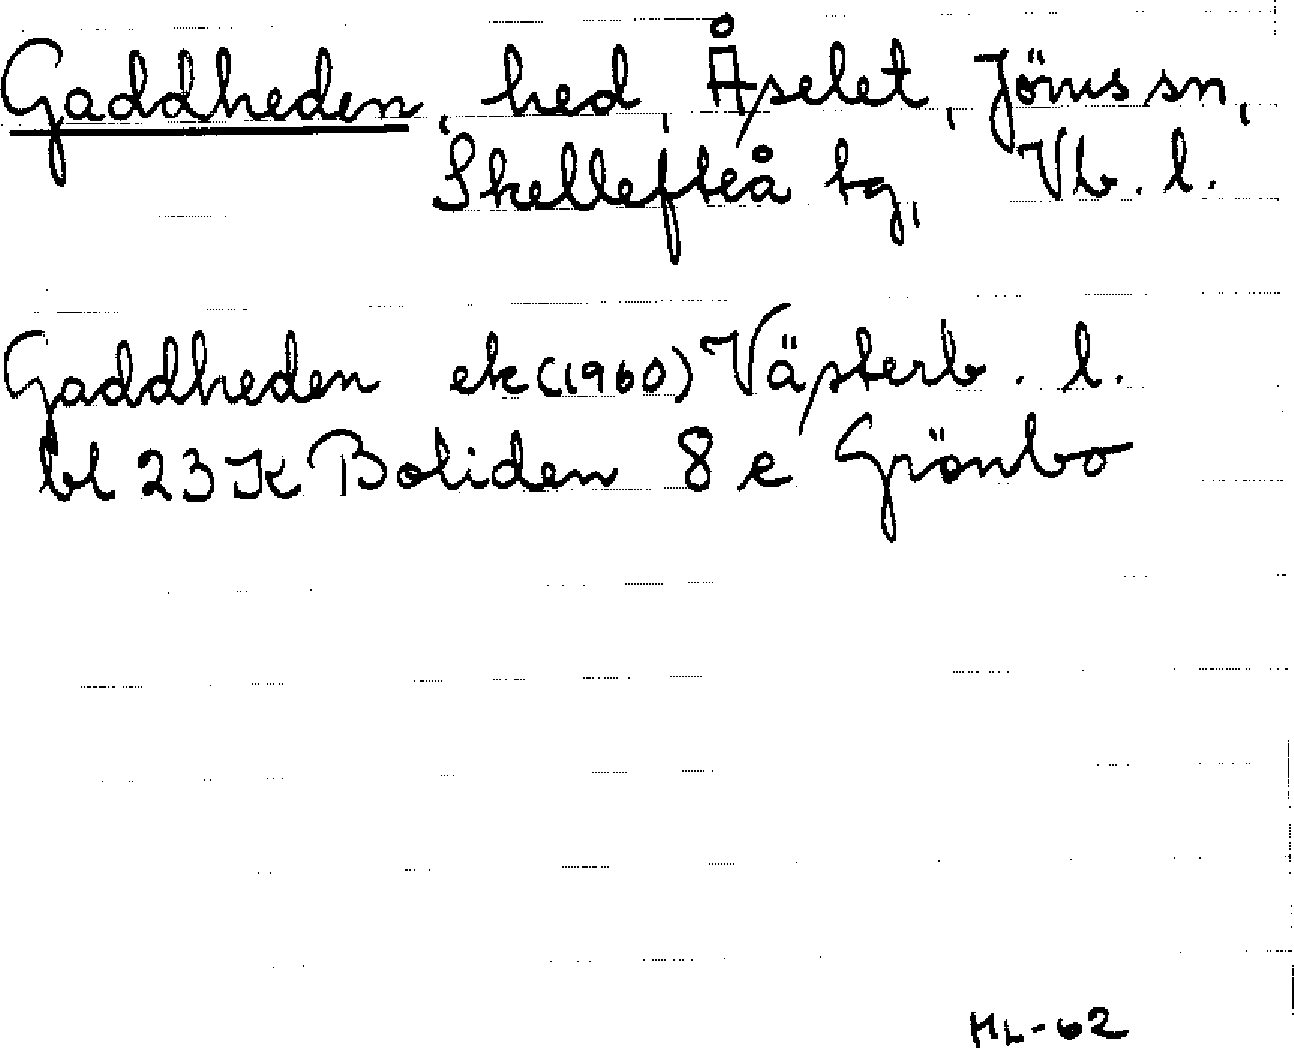 Gaddheden, hed Åselet, Jörns sn,
Skellefteå tg, Vb. l.
Gaddheden ek (1960) Västerb. l.
bl 23 K Boliden 8 e Grönbo
ML-62